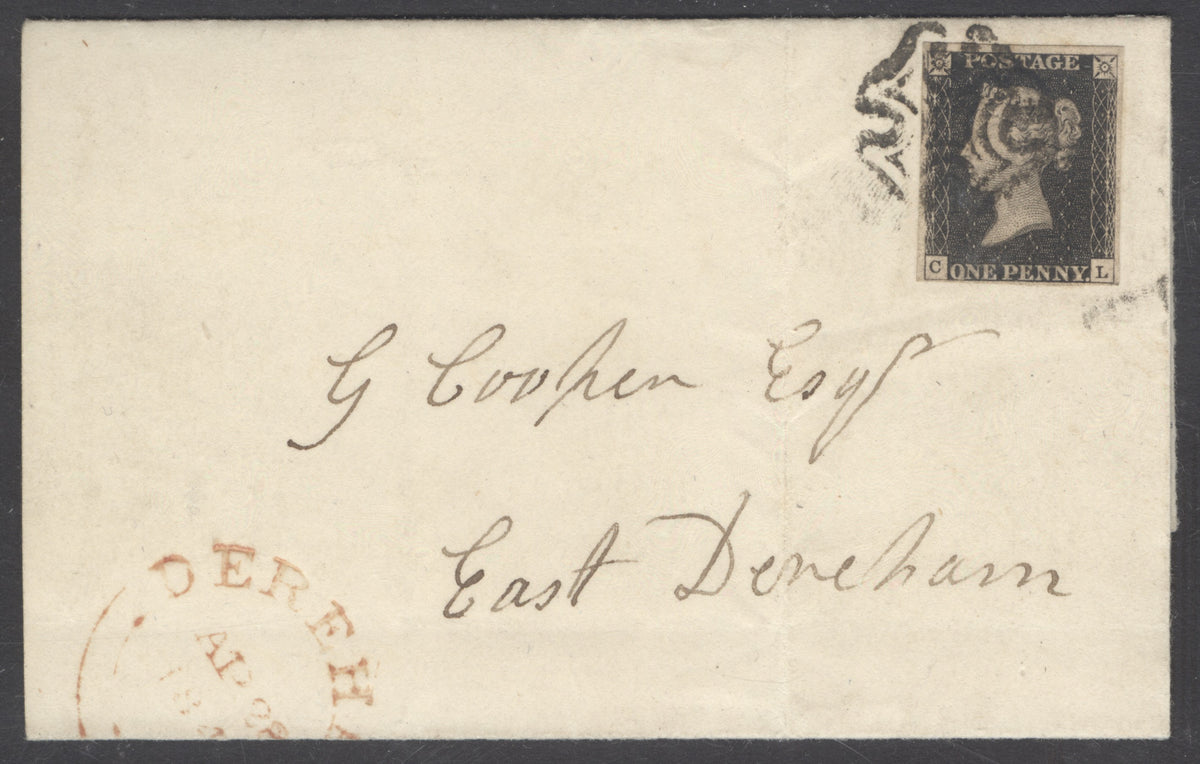 POSTAGE
C ONE PENNY. L
G Cooper Esqr
East Dereham
DEREHA